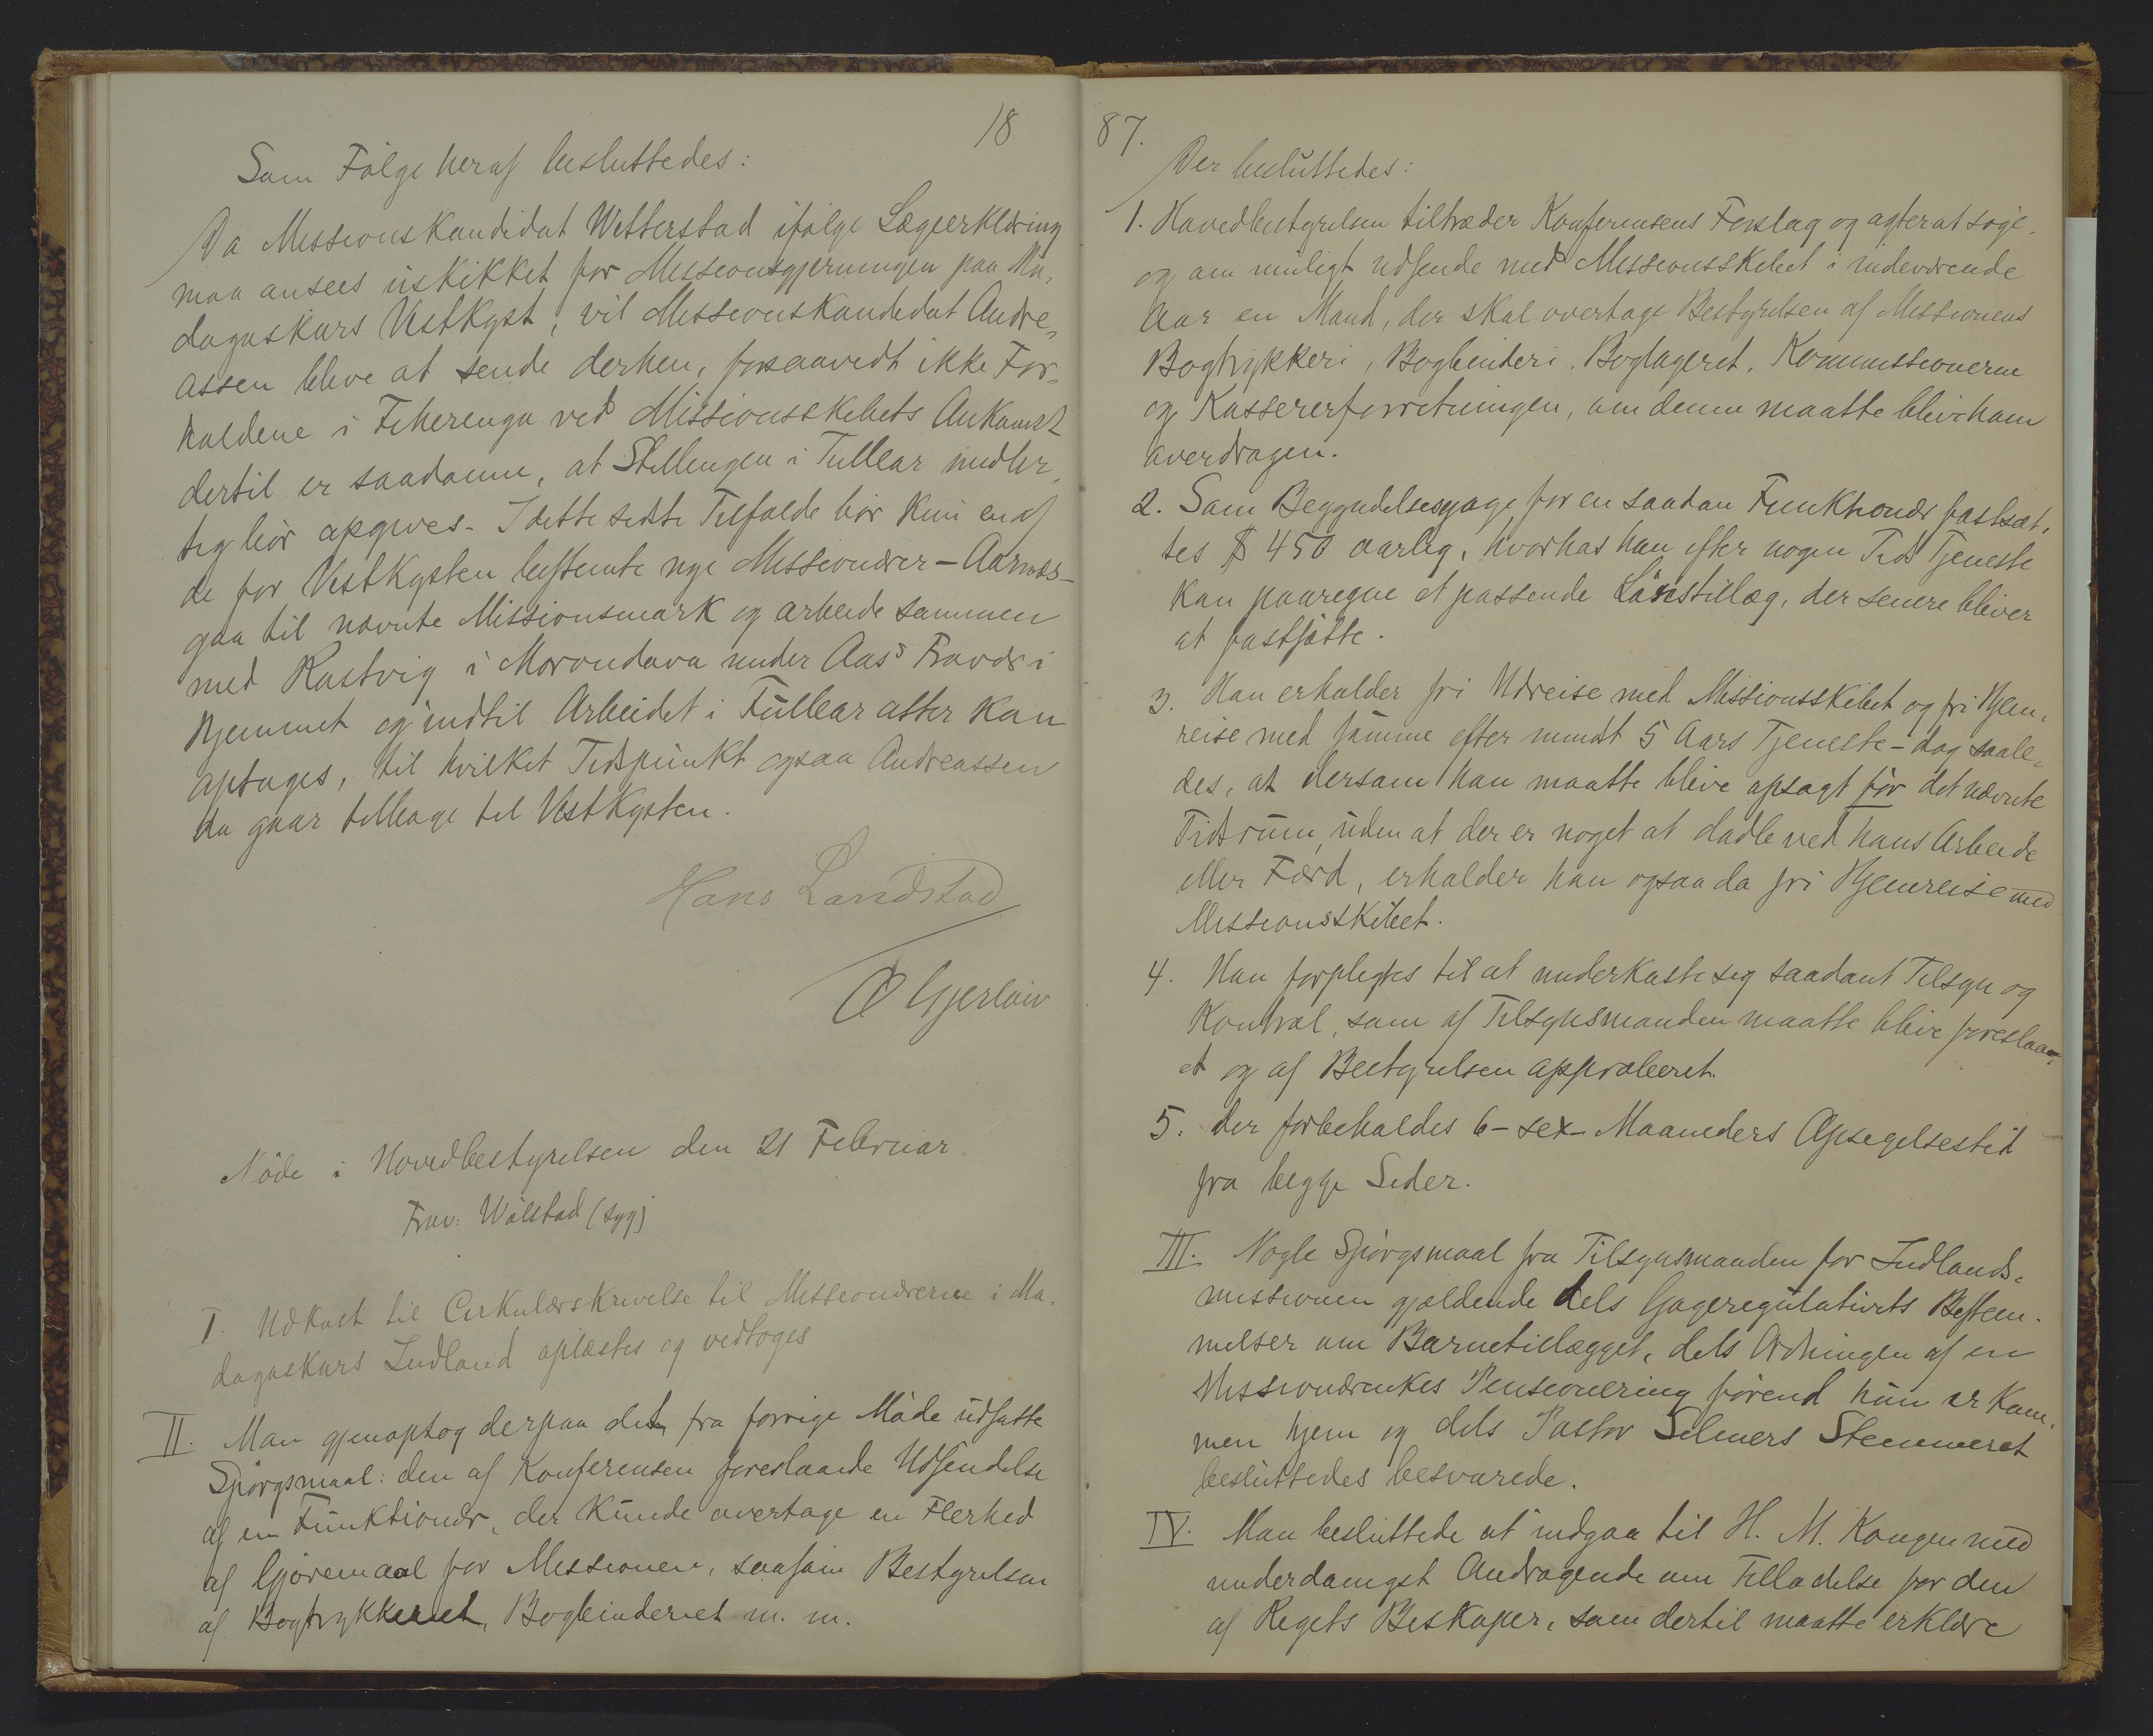 18
Som Følge heraf besluttedes:
Da Missionskandidat Wetterstad ifølge Lægeerklæring
maa ansees uskikket for Missionsgjerningen paa Ma-
dagaskars Vestkyst, vil Missionskandidat Andre-
assen blive at sende derhen, forsaavidt ikke For-
holdene i Fiherenga ved Missionsskibets Ankomst
dertil er saadanne, at Stillingen i Tullear midler-
tig bør opgives. I dette sidste Tilfælde bør kun en af
de for Vestkysten bestemte nye Missionærer - Aarnæs -
gaa til nævnte Missionsmark og arbeide sammen
med Røstvig i Morondava under Aas's Fravær i
Hjemmet og indtil Arbeidet i Tullear atter kan
optages, til hvilket Tidspunkt ogsaa Andreassen
da gaar tilbage til Vestkysten.
Hans Landstad
O Gjerløw
Møde i Hovedbestyrelsen den 21 Februar
Frav: Wålstad (syg)
I. Udkast til Cirkulærskrivelse til Missionærerne i Ma-
dagaskars Indland oplæstes og vedtoges
II. Man gjenoptog derpaa det fra forrige Møde udsatte
Spørgsmaal: den af Konferensen foreslaaede Udsendelse
af en Funktionær, der kunde overtage en Flerhed
af Gjøremaal for Missionen, saasom Bestyrelsen
af Bogtrykkeriet, Bogbinderiet m. m.
87.
Der besluttedes:
1. Hovedbestyrelsen tiltræder Konferensens Forslag og agter at søge
og om muligt udsende med Missionsskibet i indeværende
Aar en Mand, der skal overtage Bestyrelsen af Missionens
Bogtrykkeri, Bogbinderi, Boglageret, Kommissionerne
og Kassererforretningen, om denne maatte blive ham
overdragen.
2. Som Begyndelsesgage for en saadan Funktionær fastsæt-
tes $ 450 aarlig, hvorhos han efter nogen Tids Tjeneste
kan paaregne et passende Lønstillæg, der senere bliver
at fastsætte.
3. Han erholder fri Udreise med Missionsskibet og fri Hjem-
reise med samme efter mindst 5 Aars Tjeneste - dog saale-
des, at dersom han maatte blive opsagt før det nævnte
Tidsrum, uden at der er noget at dadle ved hans Arbeide
eller Færd, erholder han ogsaa da fri Hjemreise med
Missionsskibet.
4. Han forpligtes til at underkaste sig saadant Tilsyn og
Kontrol, som af Tilsynsmanden maatte blive foreslaa-
et og af Bestyrelsen approberet.
5. Der forbeholdes 6 - sex - Maaneders Opsigelsestid
fra begge Sider.
III. Nogle Spørgsmaal fra Tilsynsmanden for Indlands-
missionen gjældende dels Gageregulativets Bestem-
melser om Barnetillægget, dels Ordningen af en
Missionærenkes Pensionering førend hun er kom-
men hjem og dels Pastor Selmers Stemmeret
besluttedes besvarede.
IV. Man besluttede at indgaa til H. M. Kongen med
underdanigst Andragende om Tilladelse for den
af Rigets Biskoper, som dertil maatte erklære